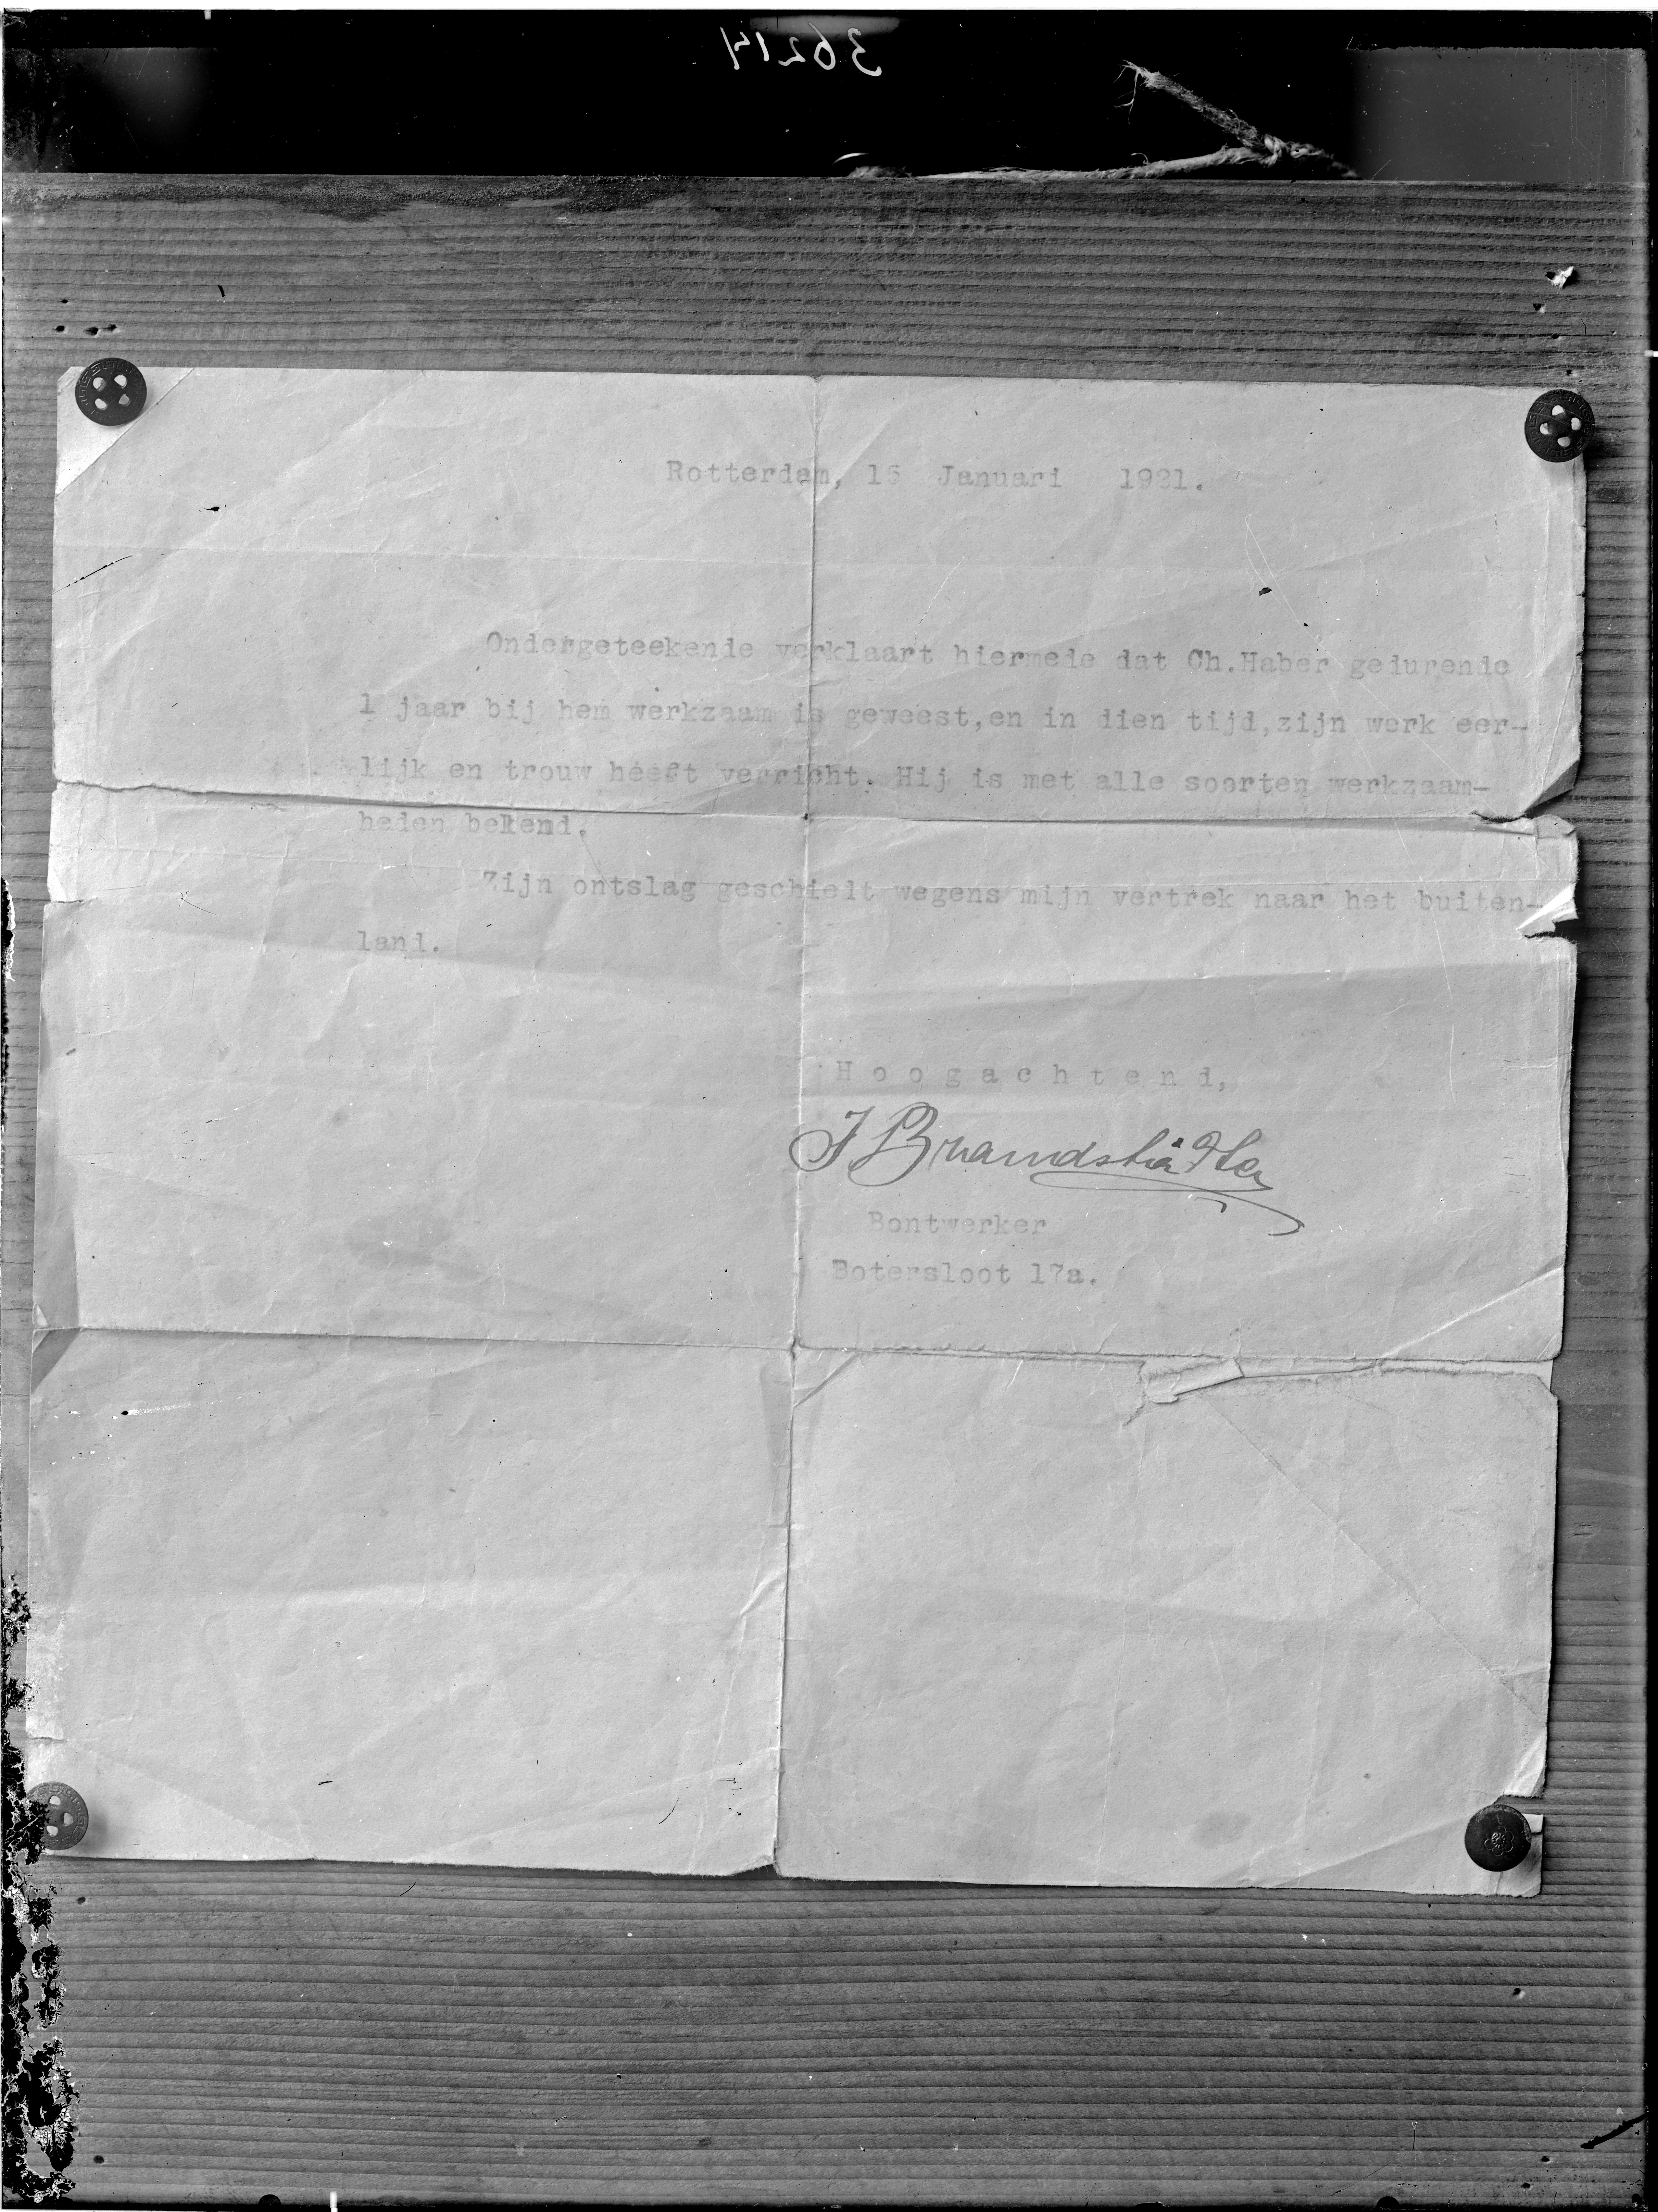 36214
Rotterdam, 16 Januari 1921.
Ondergeteekende verklaart hiermede dat Ch.Haber gedurende
1 jaar bij hem werkzaam is geweest,en in dien tijd,zijn werk eer-
lijk en trouw heeft verricht. Hij is met alle soorten werkzaam-
heden bekend.
Zijn ontslag geschielt wegens mijn vertrek naar het buiten-
land.
Hoogachtend,
J Brandstädter
Bontwerker
Botersloot 17a.